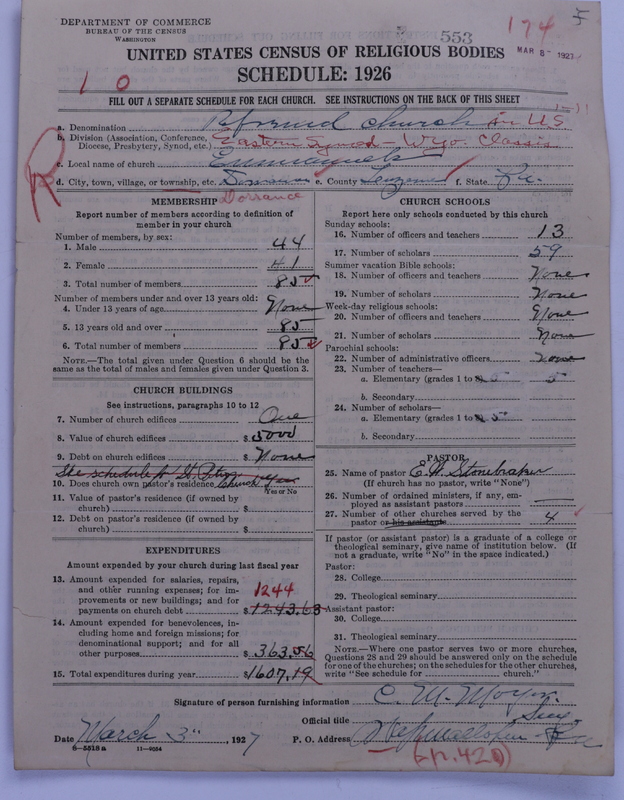 DEPARTMENT OF COMMERCE
BUREAU OF THE CENSUS
WASHINGTON
553
174
5
MAR 8 - 1927
UNITED STATES CENSUS OF RELIGIOUS BODIES
SCHEDULE: 1926
1 0
FILL OUT A SEPARATE SCHEDULE FOR EACH CHURCH. SEE INSTRUCTIONS ON THE BACK OF THIS SHEET
R
a. Denomination Reformed Church in U.S
b. Division (Association, Conference, Diocese, Presbytery, Synod, etc.) Eastern Synod - Wyo. Classis
c. Local name of church Emmanuels
d. City, town, village, or township, etc. e. County Luzerne f. State Pa.
Dorrance
MEMBERSHIP
Report number of members according to definition of
member in your church
Number of members, by sex:
1. Male 44
2. Female 41
3. Total number of members 85
Number of members under and over 13 years old:
4. Under 13 years of age None
5. 13 years old and over 85
6. Total number of members 85
NOTE.—The total given under Question 6 should be
same as the total of males and females given under Question 3.
CHURCH BUILDINGS
See instructions, paragraphs 10 to 12
7. Number of church edifices One
8. Value of church edifices $ 5000
9. Debt on church edifices $ None
See schedule for St. Church
10. Does church own pastor's residence Yes
Yes or No
11. Value of pastor's residence (if owned by
church) $
12. Debt on pastor's residence (if owned by
church) $
EXPENDITURES
Amount expended by your church during last fiscal year
13. Amount expended for salaries, repairs,
and other running expenses; for im-
provements or new buildings; and for
payments on church debt $ 1243.63
1244
14. Amount expended for benevolences, in-
cluding home and foreign missions; for
denominational support; and for all
other purposes $ 363.56
15. Total expenditures during year $ 1607.19
CHURCH SCHOOLS
Report here only schools conducted by this church
Sunday schools:
16. Number of officers and teachers 13
17. Number of scholars 59
Summer vacation Bible schools:
18. Number of officers and teachers None
19. Number of scholars None
Week-day religious schools:
20. Number of officers and teachers None
21. Number of scholars None
Parochial schools:
22. Number of administrative officers None
23. Number of teachers—
a. Elementary (grades 1 to
b. Secondary
24. Number of scholars—
a. Elementary (grades 1 to
b. Secondary
PASTOR
25. Name of pastor E. W. Stonebraker
(If church has no pastor, write "None")
26. Number of ordained ministers, if any, em-
ployed as assistant pastors
27. Number of other churches served by the
pastor or his assistants 4
If pastor (or assistant pastor) is a graduate of a college or
theological seminary, give name of institution below. (If
not a graduate, write "No" in the space indicated.)
Pastor:
28. College
29. Theological seminary
Assistant pastor:
30. College
31. Theological seminary
NOTE.—Where one pastor serves two or more churches,
Questions 28 and 29 should be answered only on the schedule
for one of the churches; on the schedules for the other churches,
write "See schedule for church."
Signature of person furnishing information C. M. Moyer
Official title Secy
Date March 3", 1927 P. O. Address Wapwallopen Pa
6-5518a 11-9054
(p. 420)